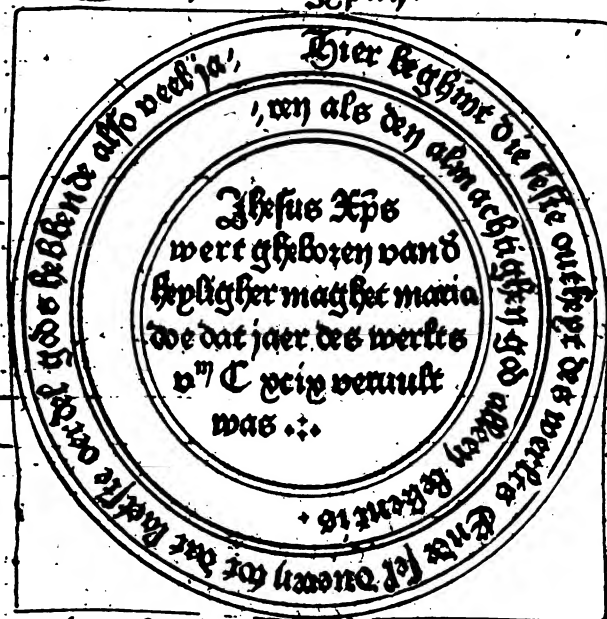 Hier beghint die seste outheyt des werlts Ende sel dueren tot dat laetste oerdel gods hebbende also veel ja,
,ren als den almachtighen god alleen bekent is
Jhesus Xp̄s
wert gheboren vand
heyligher maghet maria
doe dat jaer des werlts
vᵐ C xcix veruult
was .:.